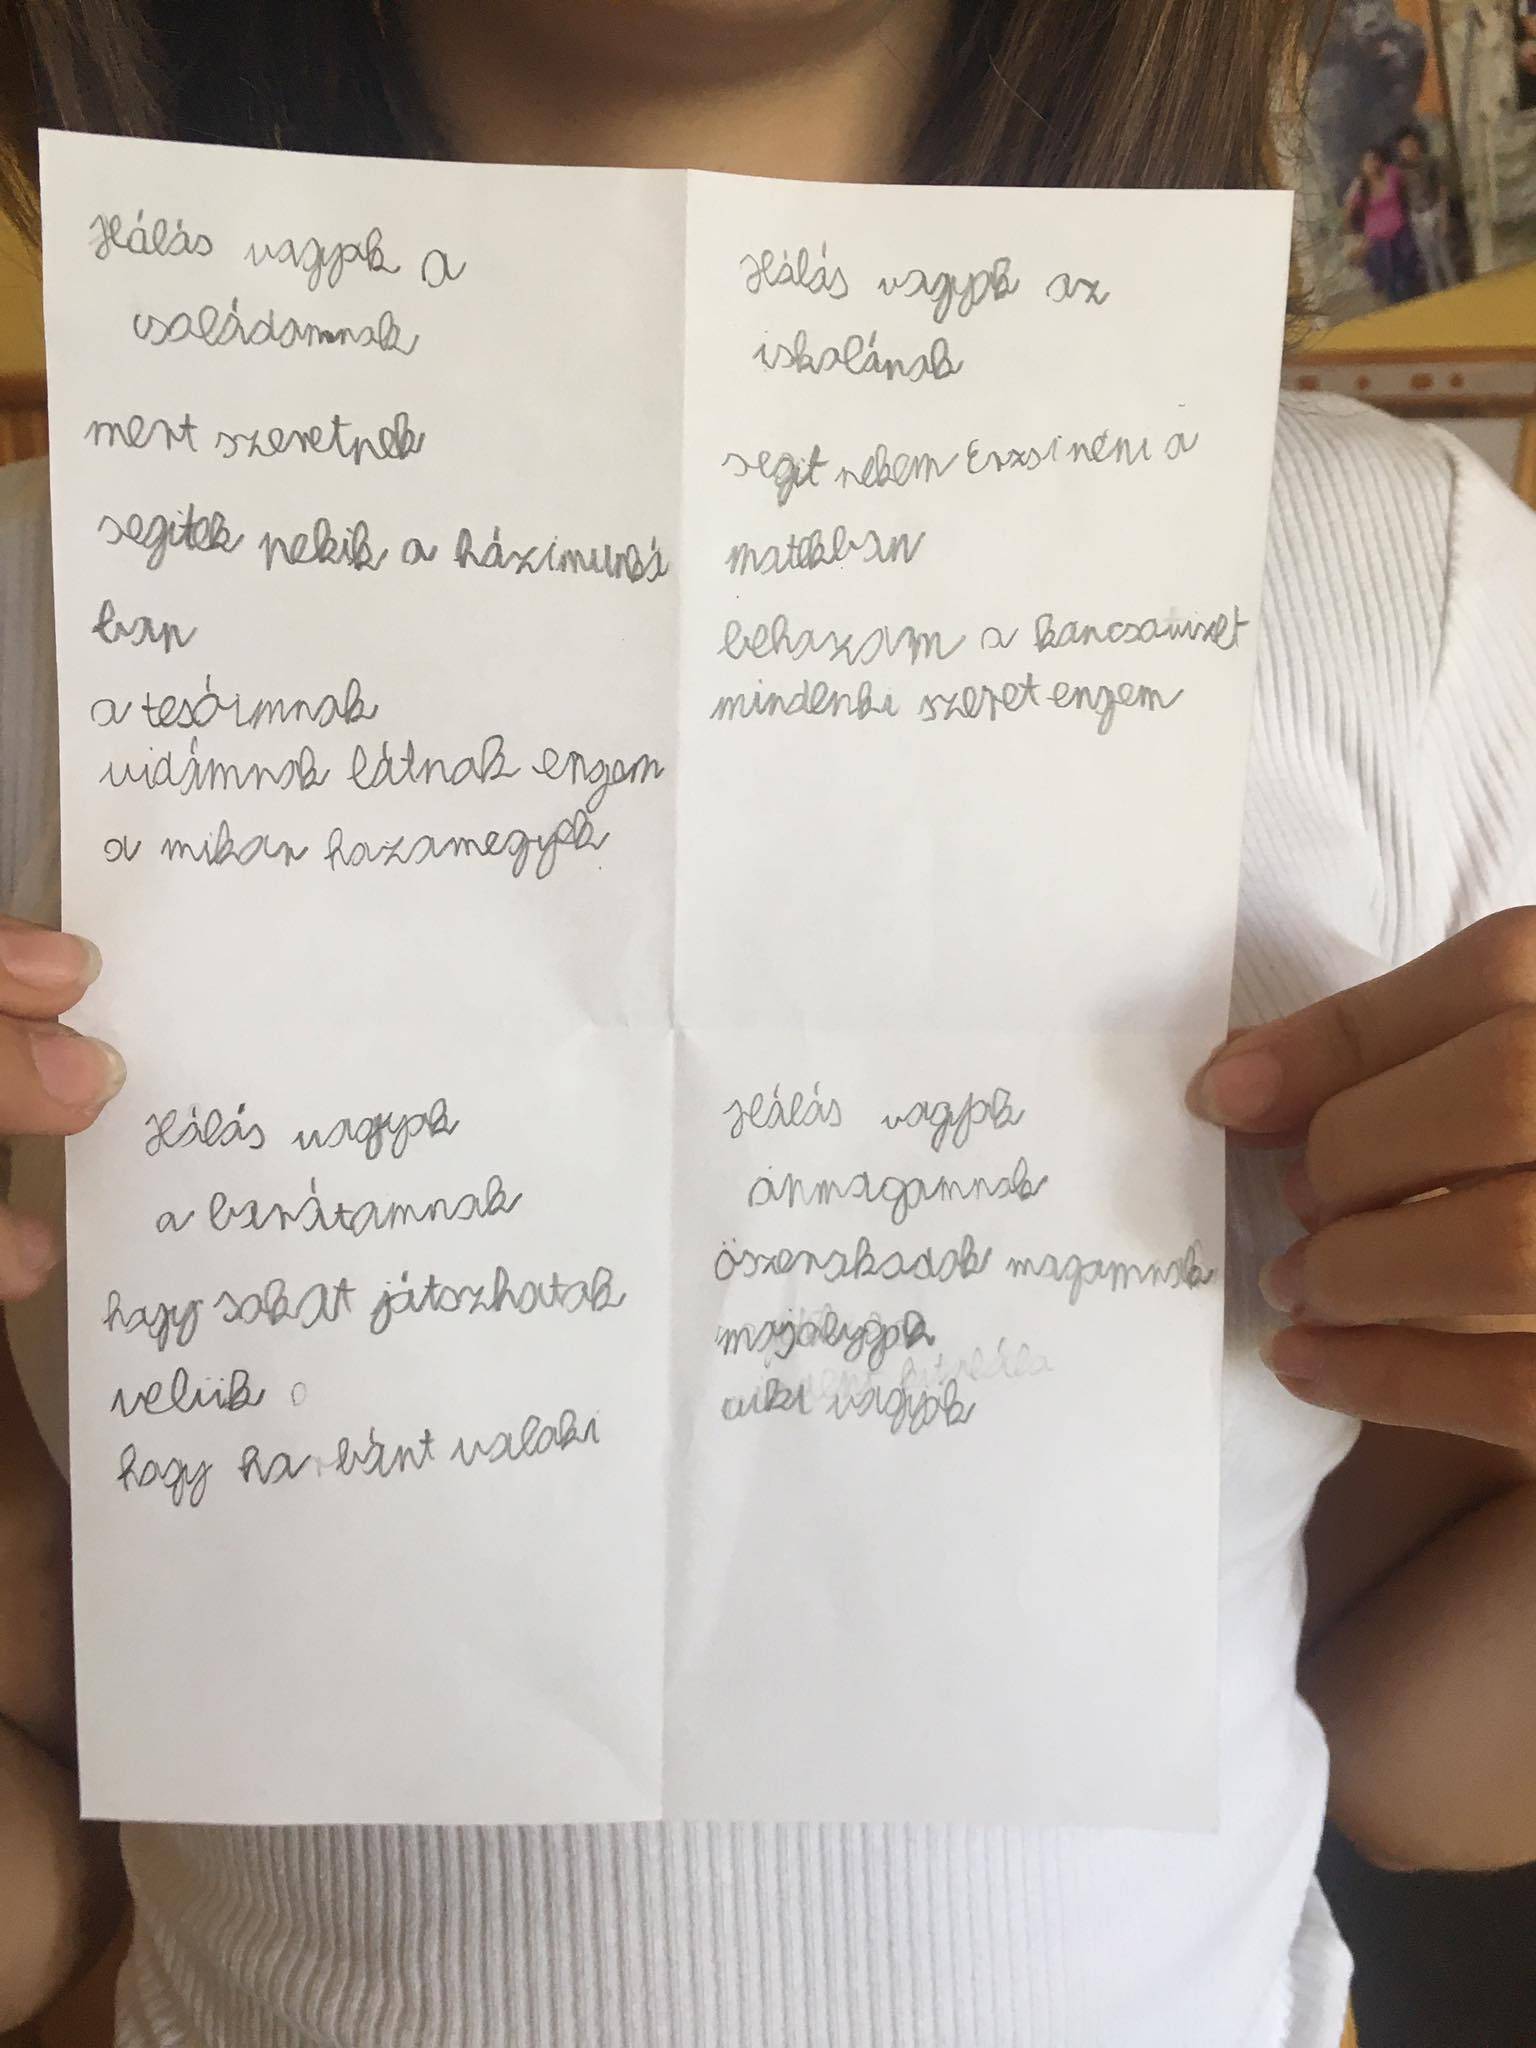 Hálás vagyok a
családomnak
mert szeretnek
segitek nekik a házimunká
ban
a tesóimnak
vidámnak látnak engem
a mikor hazamegyek
Hálás vagyok az
iskolának
segit nekem Erzsi néni a
matekban
behozom a kancsóvizet
mindenki szeret engem
Hálás vagyok
a barátamnak
hogy sokat játszhatok
velük
hogy ha bánt valaki
Hálás vagyok
önmagamnak
öszerakodok magamnak
vagyok